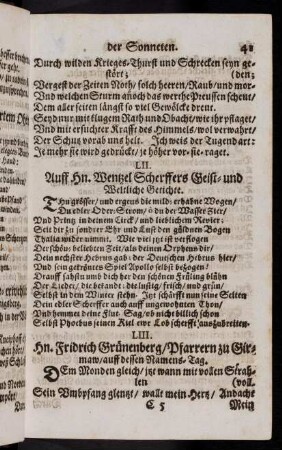 der Sonneten. 41
Durch wilden Krieges-Thurst und Schrecken seyn ge-
stört; (den;
Vergest der Zeiten Noth/ solch heeren/ Raub/ und mor-
Und welchen Sturm auch das werthe Preussen scheut/
Dem aller seiten längst so viel Gewölcke dreut.
Seyd nur mit klugem Rath und Obacht/ wie ihr pflaget/
Und mit ersuchter Krafft des Himmels/ wol verwahrt/
Der Schutz vorab uns helt. Ich weis der Tugend art:
Je mehr sie wird gedrückt/ je höher vor-sie-raget.
LII.
Auff Hn. Wentzel Scherffers Geist- und
Weltliche Getichte.
THu grösser/ und ergeus die mild erhabne Wogen/
Du edler Oder-Strom/ du der Wasser Zier/
Und Preis in deinem Lieck/ und lieblichem Revier:
Seit dir zu sonder Ehr und Lust den göldnen Bogen
Thalia wider nimmt. Wie vor itzt ist verflogen
Der schön-beliebten Zeit/ als deinen Orpheus dir/
Dein nechster Hebrus gab: der Deutschen Hebrus hier/
Und sein gekröntes Spiel Apollo selbst bezogen/
Drauff sahstu und dich her den schönen Frühling blühn
Der Lieder/ die bekandt: die lustig/ frisch/ und grün/
Selbst in dem Winter stehn. Itzt schärfft nun seine Seiten
Dein edler Scherffer auch auff ungewohnten Thon/
Und hemmet deine Flut. Sag/ ob nicht billich schon
Selbst Phœbus seinen Kiel ewr Lob schärfft auszubreiten.
LIII.
Hn. Fridrich Grünenberg/ Pfarrern zu Gir-
maw/ auff dessen Namens-Tag.
DEm Monden gleich/ itzt wann mit vollen Strah-
len (voll.
Sein Umbpfang glentzt/ wallt mein Hertz/ Andacht
C 5 Mein